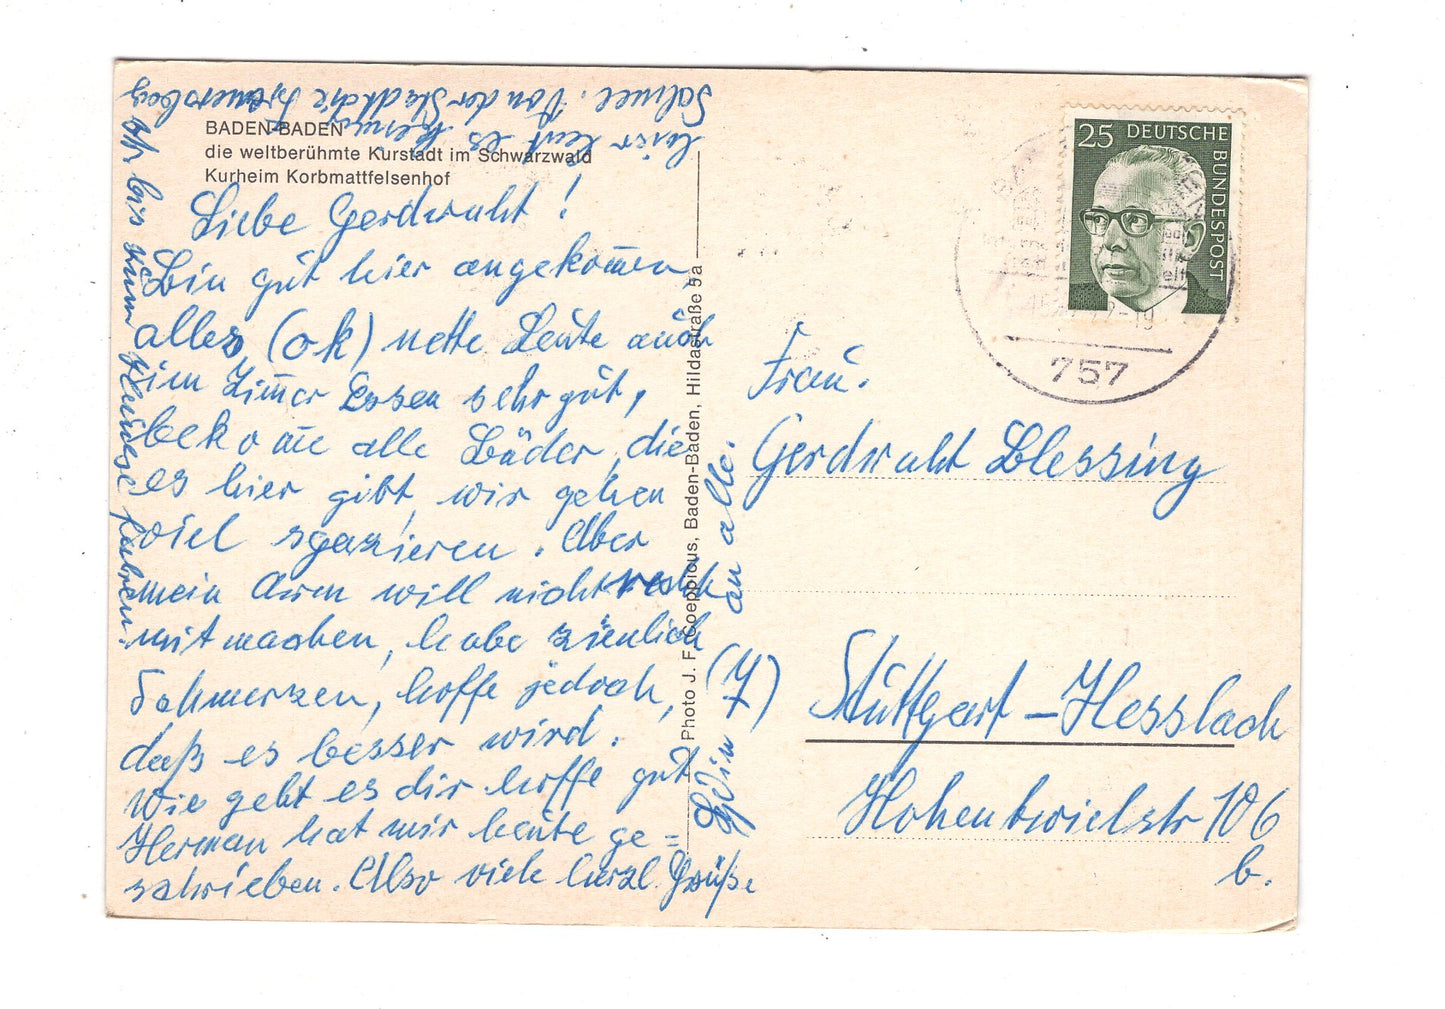 BADEN-BADEN
die weltberühmte Kurstadt im Schwarzwald
Kurheim Korbmattfelsenhof
Liebe Gerdraht!
Bin gut hier angekom̄en,
alles (ok) nette Leute auch
im Zim̄er Essen sehr gut,
bekom̄e alle Bäder, die
es hier gibt, wir gehen
viel spazieren. Aber
mein Arm will nicht recht
mitmachen, habe ziemlich
Schmerzen, hoffe jedoch,
daß es besser wird.
Wie geht es dir hoffe gut
Herman hat mir heute ge=
schrieben. Also viele herzl. Grüße
an alle.
hier heut es
Schnee. Von der Stadt die
bis zum Hause fahren.
Photo J. F. Coeppicus, Baden-Baden, Hildastraße 5a
25 DEUTSCHE BUNDESPOST
757
Frau.
Gerdraht Blessing
Stuttgart-Heslach
Hohentwielstr 106
b.